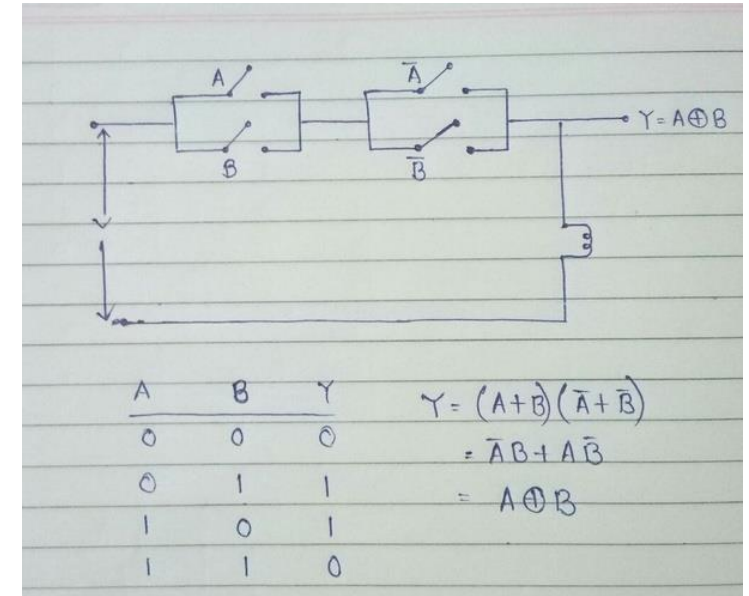 A
A̅
Y = A⊕B
B
B̅
A B Y
0 0 0
0 1 1
1 0 1
1 1 0
Y = (A+B)(A̅+B̅)
= A̅B+AB̅
= A⊕B